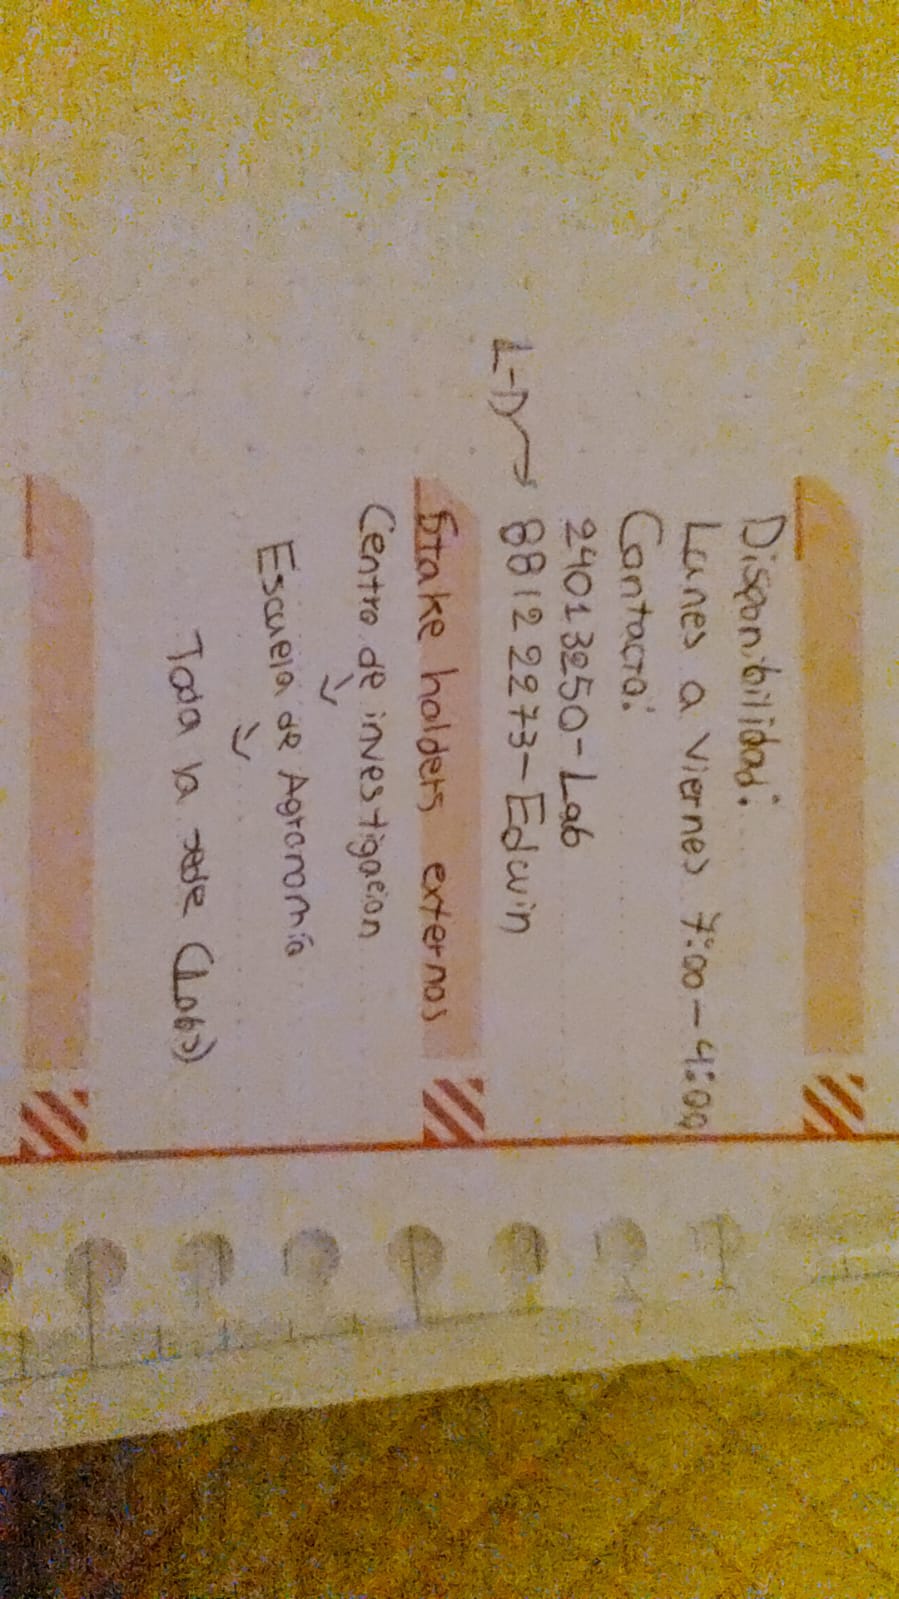 Disponibilidad:
Lunes a Viernes 7:00-4:00
Contacto:
24013250-Lab
L-D → 8812 2273-Edwin
Stake holders externos
Centro de investigacion
Escuela de Agronomía
Toda la sede (Labs)